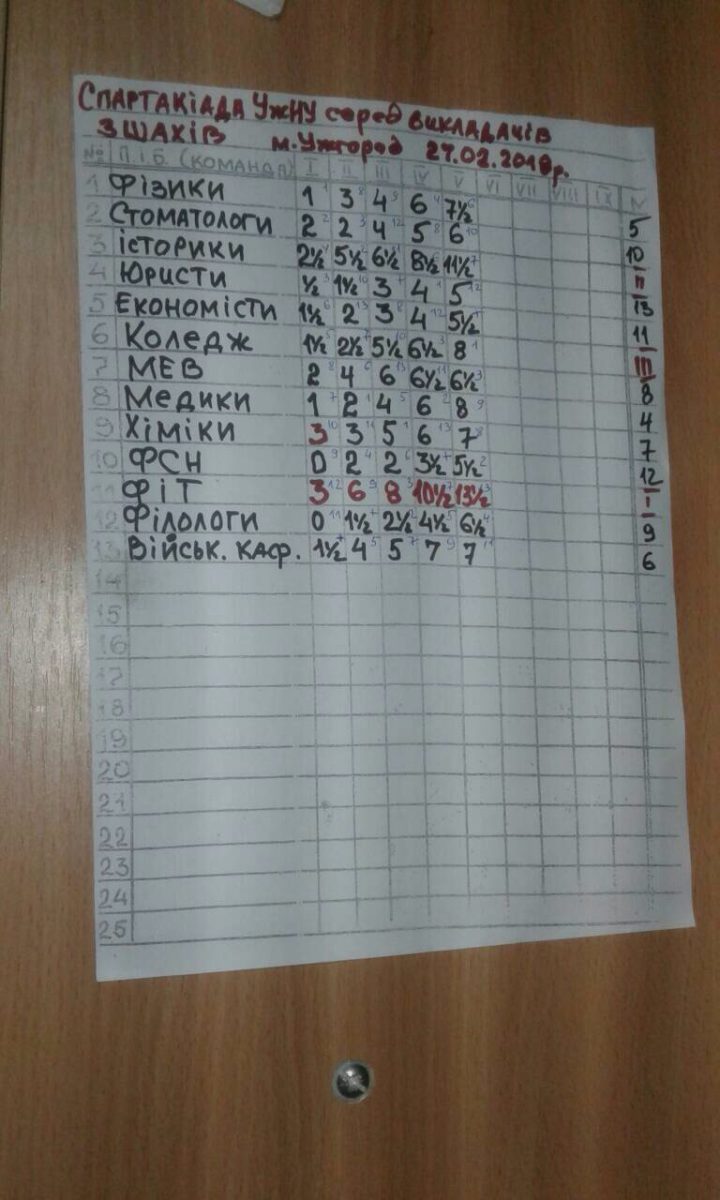 СПАРТАКІАДА УжНУ серед ВИКЛАДАЧІВ
З ШАХІВ м.Ужгород 27.02.2018р.
№ П.І.Б. (КОМАНДА) I II III IV V VI VII VIII IX
1 ФІЗИКИ 1 3 4 6 7½ 5
2 СТОМАТОЛОГИ 2 2 4 5 6 10
3 ІСТОРИКИ 2½ 5½ 6½ 8½ 11½ II
4 ЮРИСТИ ½ 1½ 3 4 5 13
5 ЕКОНОМІСТИ 1½ 2 3 4 5½ 11
6 КОЛЕДЖ 1½ 2½ 5½ 6½ 8 III
7 МЕВ 2 4 6 6½ 6½ 8
8 МЕДИКИ 1 2 4 6 8 4
9 ХІМІКИ 3 3 5 6 7 7
10 ФСН 0 2 2 3½ 5½ 12
11 ФІТ 3 6 8 10½ 13½ I
12 ФІЛОЛОГИ 0 1½ 2½ 4½ 6½ 9
13 ВІЙСЬК. КАФ. 1½ 4 5 7 7 6
14
15
16
17
18
19
20
21
22
23
24
25